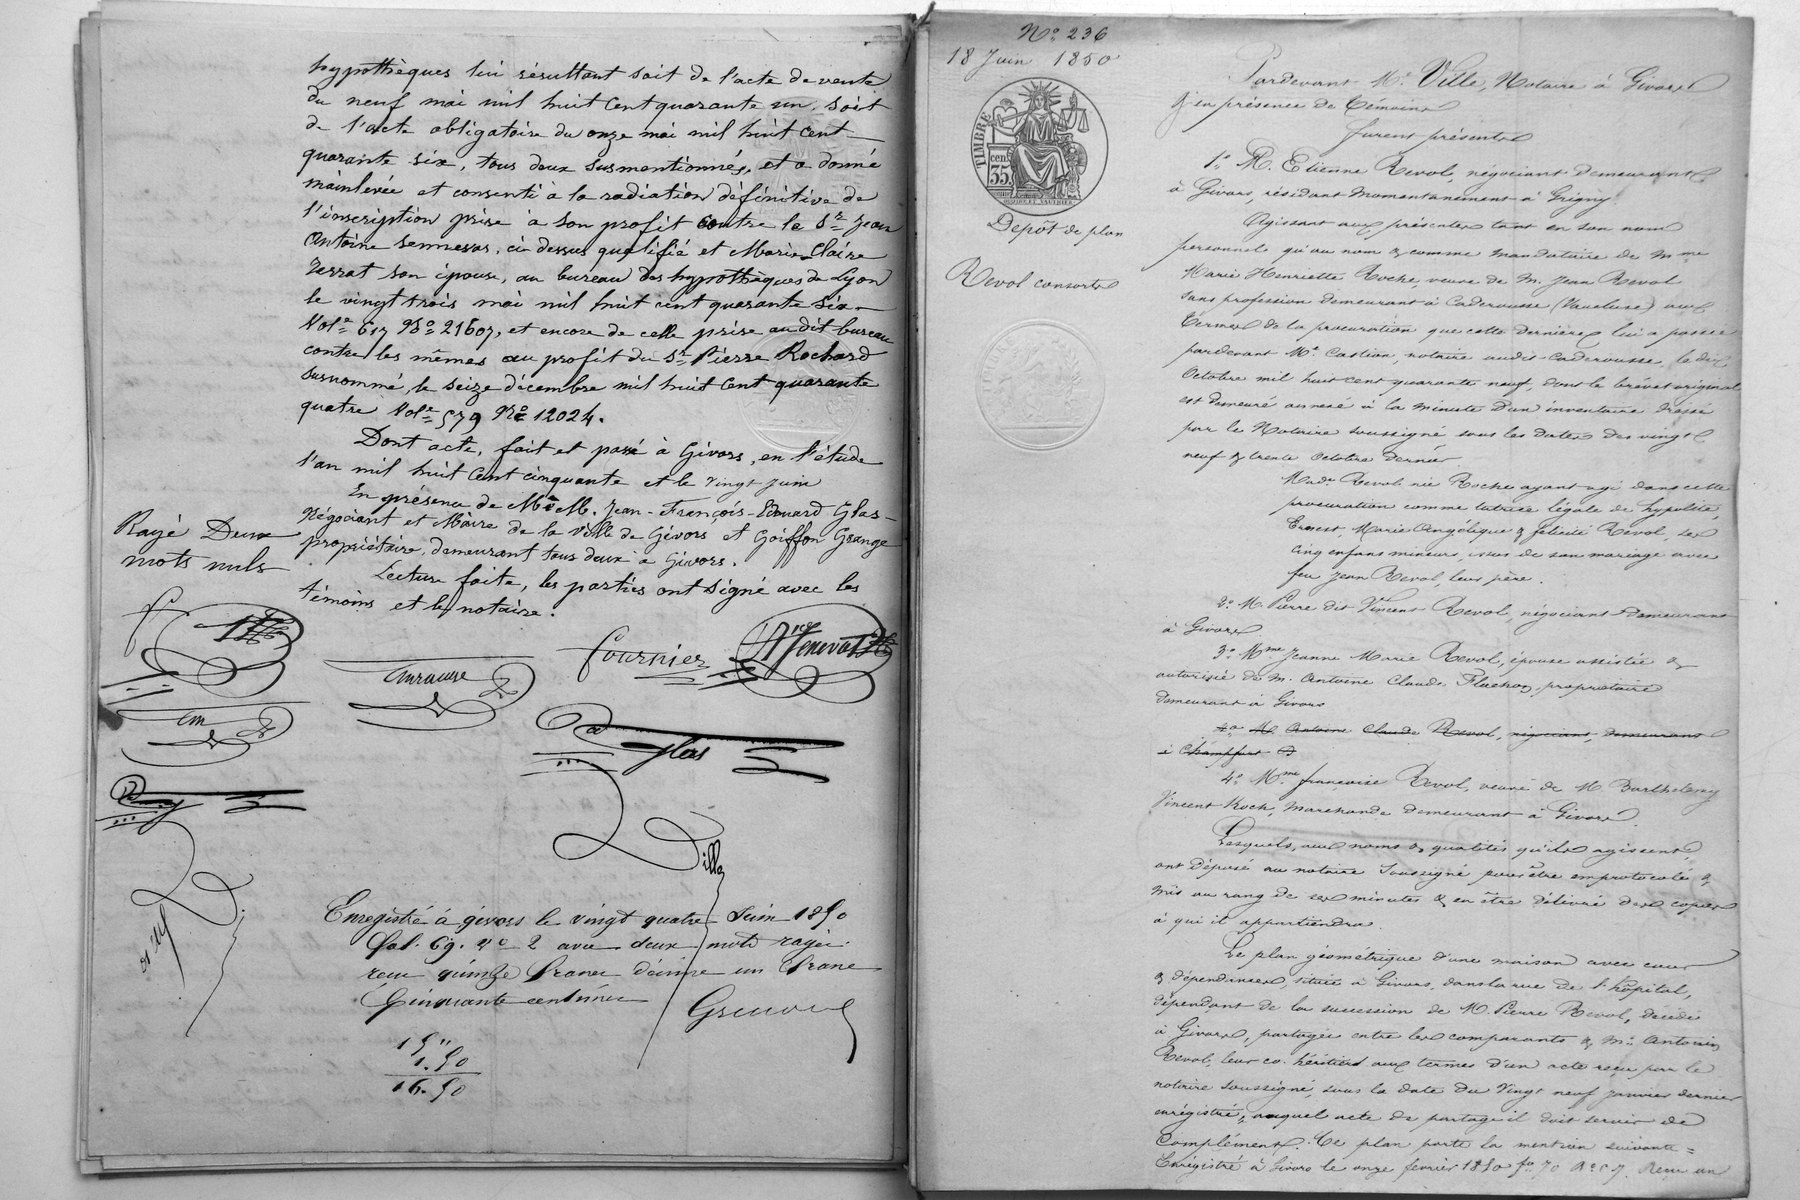 hypothèques lui résultant soit de l'acte de vente
du neuf mai mil huit cent quarante un, soit
de l'acte obligatoire du onze mai mil huit cent
quarante six, tous deux susmentionnés, et a donné
mainlevée et consenti à la radiation définitive de
l'inscription prise à son profit contre le Sr. Jean
Antoine ci-dessus qualifié et Marie Claire
son épouse, au bureau des hypothèques de Lyon
le vingt trois mai mil huit cent quarante six
Vole. 617 No. 21607, et encore de celle prise audit bureau
contre les mêmes au profit du Sr. Pierre Rochard
susnommé, le seize décembre mil huit cent quarante
quatre Vole. 579 No. 12024.
Dont acte, fait et passé à Givors, en l'étude
l'an mil huit cent cinquante et le vingt juin
En présence de M.M. Jean-François-Edouard Glas
Négociant et Maire de la Ville de Givors et Goiffon Grange
propriétaire, demeurant tous deux à Givors.
Lecture faite, les parties ont signé avec les
témoins et le notaire.
Rayé Deux
mots nuls
Fournier
Glas
Ville
Enregistré à givors le vingt quatre Juin 1850
fol. 69. Vo 2 avec deux mots rayés.
reçu quinze francs décime un franc
Cinquante centimes
15"
1.50
16.50
No. 236
18 Juin 1850
TIMBRE
cen.
35
Depôt de plan
Revol consorts
Pardevant Me. Ville, Notaire à Givors
& en présence de témoins
furent présents
1o. M. Etienne Revol, négociant demeurant
à Givors, résidant momentanément à Grigny.
Agissant aux présentes tant en son nom
personnel qu'au nom & comme mandataire de Mme
Marie Henriette Roche, veuve de M. Jean Revol
sans profession demeurant à Caderousse (Vaucluse) aux
termes de la procuration que cette dernière lui a passée
pardevant Me. Castion, notaire audit Caderousse, le dix
Octobre mil huit cent quarante neuf, dont le brévet original
est demeuré annexé à la minute d'un inventaire dressé
par le Notaire soussigné sous les dates des vingt
neuf & trente Octobre dernier
Made. Revol née Roche ayant agi dans cette
procuration comme tutrice légale de hypolite,
Ernest, Marie Angélique & félicité Revol, ses
cinq enfans mineurs, issus de son mariage avec
feu Jean Revol, leur père.
2o. M. Pierre dit Vincent Revol, négociant demeurant
à Givors
3o. Mme Jeanne Marie Revol, épouse assistée &
autorisée de M. Antoine Claude Flachon, propriétaire
demeurant à Givors
4o M. Antoine Claude Revol, négociant, demeurant
à
4o. Mme françoise Revol, veuve de M. Barthelemy
Vincent Koch, Marchande demeurant à Givors.
Lesquels, aux noms & qualités qu'ils agissent,
ont déposé au notaire Soussigné pour être emprotocolé &
mis au rang de ses minutes & en être délivré des copies
à qui il appartiendra.
Le plan géométrique d'une maison avec cour
& dépendances, située à Givors, dans la rue de l'hôpital,
dépendant de la succession de M. Pierre Revol, décédé
à Givors, partagée entre les comparants & M. Antonin
Revol, leur co-héritier aux termes d'un acte reçu par le
notaire soussigné, sous la date du Vingt neuf janvier dernier
enrégistré, auquel acte de partage il doit servir de
Complément. Ce plan porte la mention suivante =
Enrégistré à Givors le onze février 1850 fo. 70 Ro. c 7. Reçu un